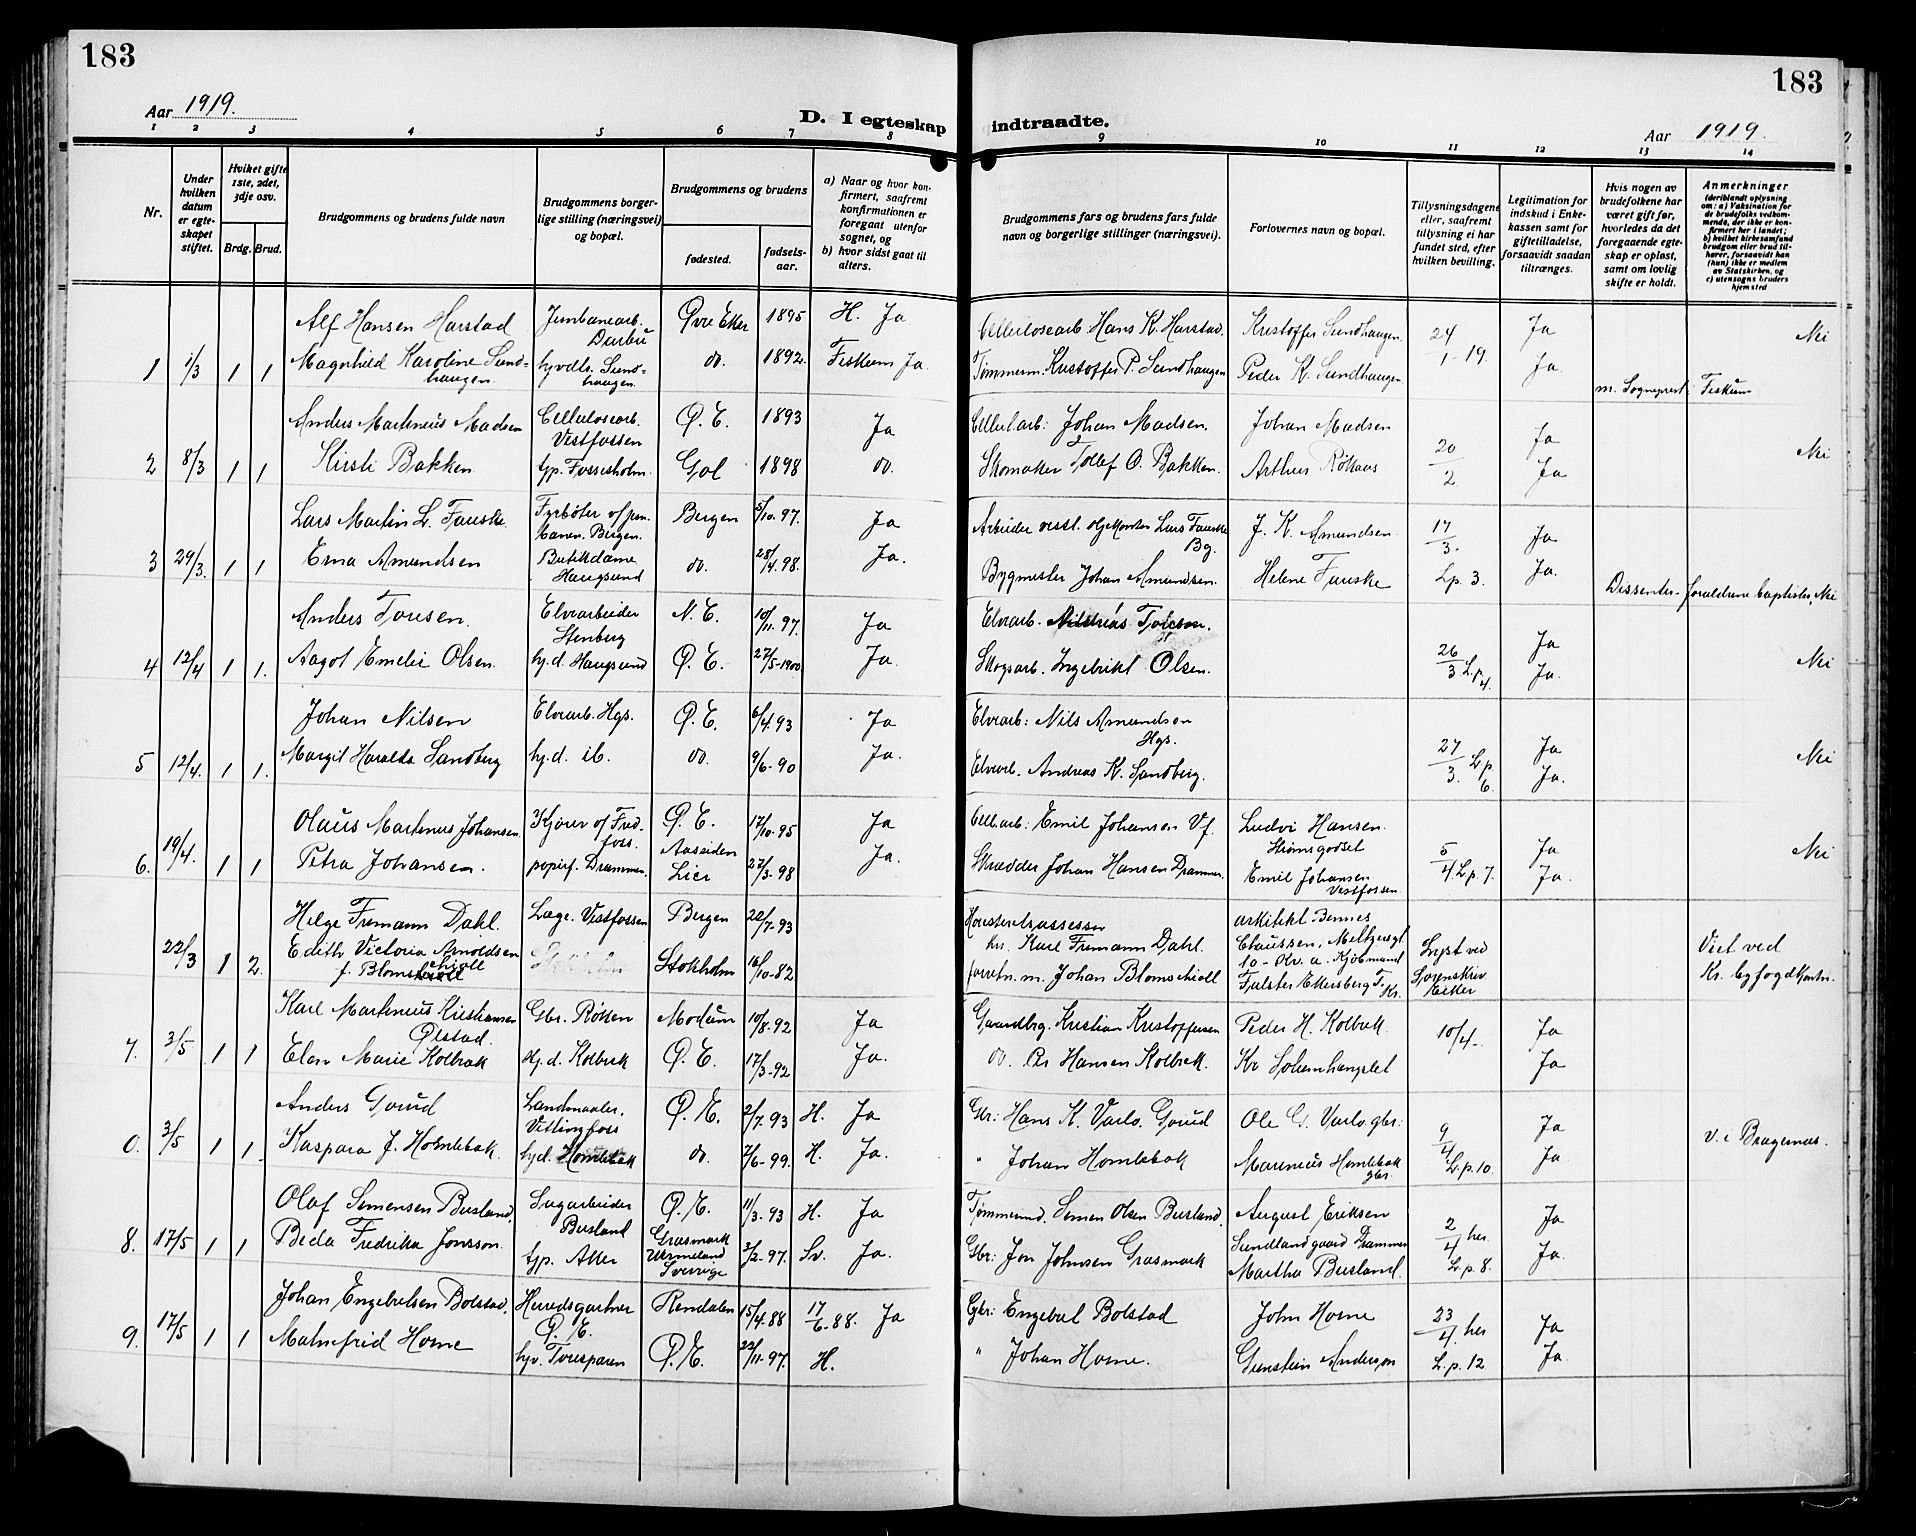 183
183
Aar 1919.
D. I egteskap indtraadte.
Aar 1919.
1 2 3 4 5 6 7 8 9 10 11 12 13 14
Nr.
Under hvilken datum er egteskapet stiftet.
Hvilket gifte 1ste, 2det, 3dje osv.
Brdg. Brud.
Brudgommens og brudens fulde navn
Brudgommens borgerlige stilling (næringsvei) og bopæl.
Brudgommens og brudens
fødested.
fødselsaar.
a) Naar og hvor konfirmert, saafremt konfirmationen er foregaat utenfor sognet, og
b) hvor sidst gaat til alters.
Brudgommens fars og brudens fars fulde navn og borgerlige stillinger (næringsvei).
Forlovernes navn og bopæl.
Tillysningsdagene eller, saafremt tillysning ei har fundet sted, efter hvilken bevilling.
Legitimation for indskud i Enkekassen samt for giftetilladelse, forsaavidt saadan tiltrænges.
Hvis nogen av brudefolkene har været gift før, hvorledes da det foregaaende egteskap er opløst, samt om lovlig skifte er holdt.
Anmerkninger (deriblandt oplysning om: a) Vaksination for de brudefolks vedkommende, der ikke er konfirmert her i landet; b) hvilket kirkesamfund brudgom eller brud tilhører, forsaavidt han (hun) ikke er medlem av Statskirken, og c) utensogns bruders hjemsted
Alf Hansen Harstad Jernbanearb. Darbu Øvre Eker 1895 H. Ja Cellulosearb. Hans K. Harstad. Kristoffer Sundhaugen. 24/1-19. Ja Nei
1 1/3 1 1 Magnhild Karoline Sundhaugen. hysdtr. Sundhaugen. do. 1892. Fiskum Ja. Tømmerm. Kristoffer P. Sundhaugen Peder K. Sundhaugen. Ja.
m. Sogneprest i Fiskum
Anders Martinius Madsen Cellulosearb. Vestfossen Ø. E. 1893 Ja Cellul.arb: Johan Madsen. Johan Madsen 20/2. Ja Nei
2 8/3 1 1 Kirsti Bakken. tjp. Fossesholm. Gol 1898 do. Skomaker Tollef O. Bakken. Ja
Lars Martin L. Fauske. Fyrbøter Bergen. Bergen 5/10.97. Ja Arbeider Lars Fauske Bg. J. K. Amundsen. 17/3. Ja
3 29/3. 1 1 Erna Amundsen Butikdame Haugsund do. 28/4.98. Ja. Bygmester Johan Amundsen. Helene Fauske Lp. 3. Ja.
Dissenter-foraldrene baptister, Nei
Anders Tousen. Elvearbeider Stenberg N. E. 10/11.97. Ja Elvearb. Ja
4 12/4 1 1. Aagot Emelie Olsen. hj.d. Haugsund Ø. E. 27/5-1900 Ja. Skogsarb. Ingebrikt Olsen. 26/3 L.p. 4. Ja. Nei
Johan Nilsen Elvearb. Hgs. Ø. E. 6/4.93 Ja Elvearb: Nils Amundsen Hgs. Ja
5 12/4. 1 1. Margit Haralda Sandberg hj.d. ib. do. 9/6-90 Ja. Elvearb. Andreas K. Sandberg. 27/3. L.p. 6. Ja. Nei
Olaus Martinus Johansen. Kjører Fredfoss. Ø. E. 17/10-95 Ja Cell.arb: Emil Johansen Vf. Ludvi Hansen. Strømsgodset Ja Nei
6. 19/4. 1 1 Petra Johansen. papirf. Drammen. Aaseiden Lier 27/3-98 Ja. Skrædder Johan Hansen Drammen. Emil Johansen Vestfossen 5/4. L.p. 7. Ja.
Helge Fremann Dahl. Læge. Vestfossen Bergen 22/7-93 Høiesteretsassessor hr. Karl Fremann Dahl. arkitekt Bennes
22/3 1 2. Edith Victoria Arnoldsen f. Blomschiøll Stokholm 16/10-82 forretn.m. Johan Blomschiøll Lyst ved Sorenskriv. Eiker Viet ved Kr. byfogdkontr.
Karl Martinius Kristiansen Ølstad. Gbr. Modum 10/8-92 Ja Gaardbrg. Kristian Kristoffersen Peder H. Kolbræk. 10/4-. Ja
7. 3/5 1 1 Elen Marie Kolbræk hj.d. Kolbræk Ø. E. 17/3-92 Ja. do. Per Hansen Kolbræk. Ja
Anders Gorud Landmaaler. Vittingfoss Ø. E. 2/7.93 H. Ja Gbr: Hans K. Varlo. Gorud Ole G. Varlo. gbr: Ja
0. 3/5 1 1. Kaspara J. Homlebæk hj.d. Homlebæk do. 7/6-99. H. Ja. " Johan Homlebæk Marenius Homlebæk gbr. 9/4 L.p. 10. Ja. V. i Bragernes.
Olaf Semensen Busland. Sagarbeider Busland Ø. E. 11/3-93 H. Ja Tømmermd. Semen Olsen Busland. August Eriksen Ja
8. 17/5 1 1 Beda Fredrika Jonsson. tjp. Grasmark Vermeland Sverrige 3/2-97. Sv. Ja. Gbr: Jon Johnsen Grasmark Sundlandgaard Drammen Martha Busland. 2/4 her L.p. 8. Ja.
Johan Engebretsen Bolstad. Herredsgartner Ø. E. Rendalen 15/4.88 17/6-88. Ja Gbr: Engebret Bolstad John Horne 23/4. her Ja
9. 17/5 1 1 Malmfrid Horne hjv. Toresparen Ø. E. 22/11-97. H. " Johan Horne. Gunstein Anderson L.p. 12 Ja